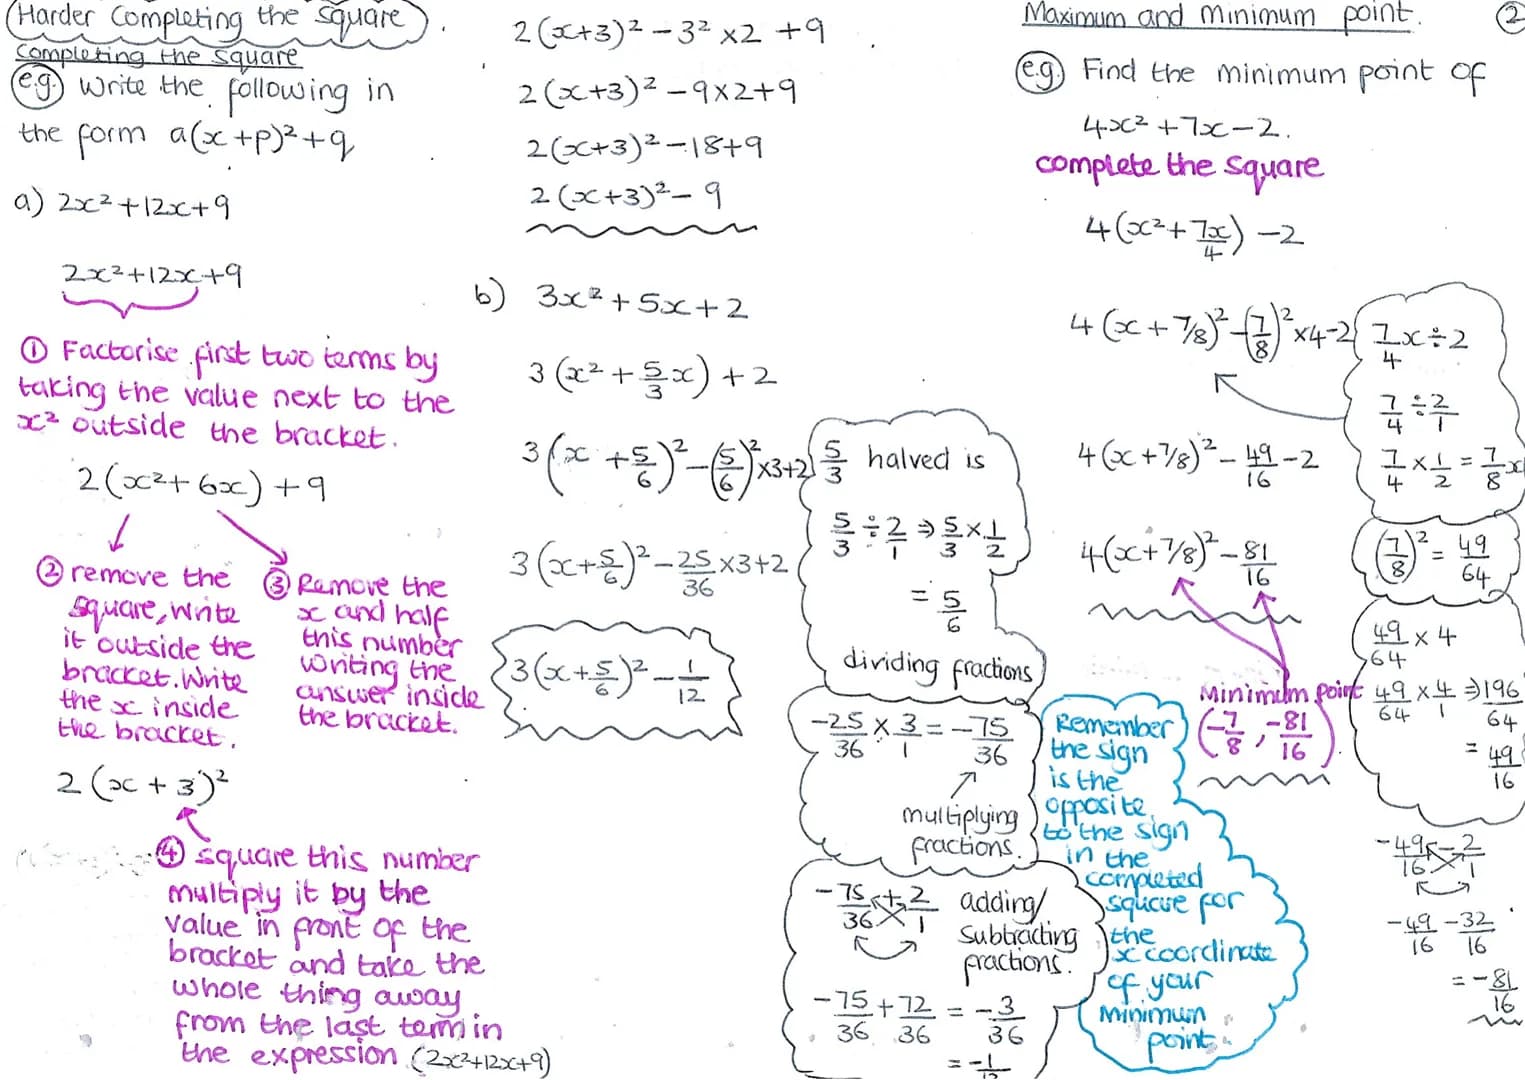 Harder Completing the square.
Completing the square
e.g. Write the following in
the form a(x+p)²+q
a) 2x²+12x+9
2x²+12x+9
① Factorise first two terms by
taking the value next to the
x² outside the bracket.
2(x²+6x)+9
② remove the
square, write
it outside the
bracket. Write
the x inside
the bracket.
③ Remove the
x and half
this number
writing the
answer inside
the bracket.
2(x+3)²
④ square this number
multiply it by the
value in front of the
bracket and take the
whole thing away
from the last term in
the expression (2x²+12x+9)
2(x+3)²-3²×2+9
2(x+3)²-9×2+9
2(x+3)²-18+9
2(x+3)²-9
b) 3x²+5x+2
3(x²+5/3x)+2
3(x+5/6)²-(5/6)²×3+2
3(x+5/6)²-25/36×3+2
3(x+5/6)²-1/12
5/3 halved is
5/3÷2/1⇒5/3×1/2
=5/6
dividing fractions
-25/36×3/1=-75/36
multiplying
fractions.
-75/36+2/1
adding/
subtracting
fractions.
-75/36+72/36=-3/36
=-1/12
Maximum and minimum point. 2
e.g. Find the minimum point of
4x²+7x-2.
complete the square
4(x²+7x/4)-2
4(x+7/8)²-(7/8)²×4-2
4(x+7/8)²-49/16-2
4(x+7/8)²-81/16
Minimum point
(-7/8, -81/16)
Remember
the sign
is the
opposite
to the sign
in the
completed
square for
the
x coordinate
of your
minimum
point.
7/4x÷2
7/4÷2/1
7/4×1/2=7/8x
(7/8)²=49/64
49/64×4
49/64×4/1⇒196/64
=49/16
-49/16-2/1
-49/16-32/16
=-81/16